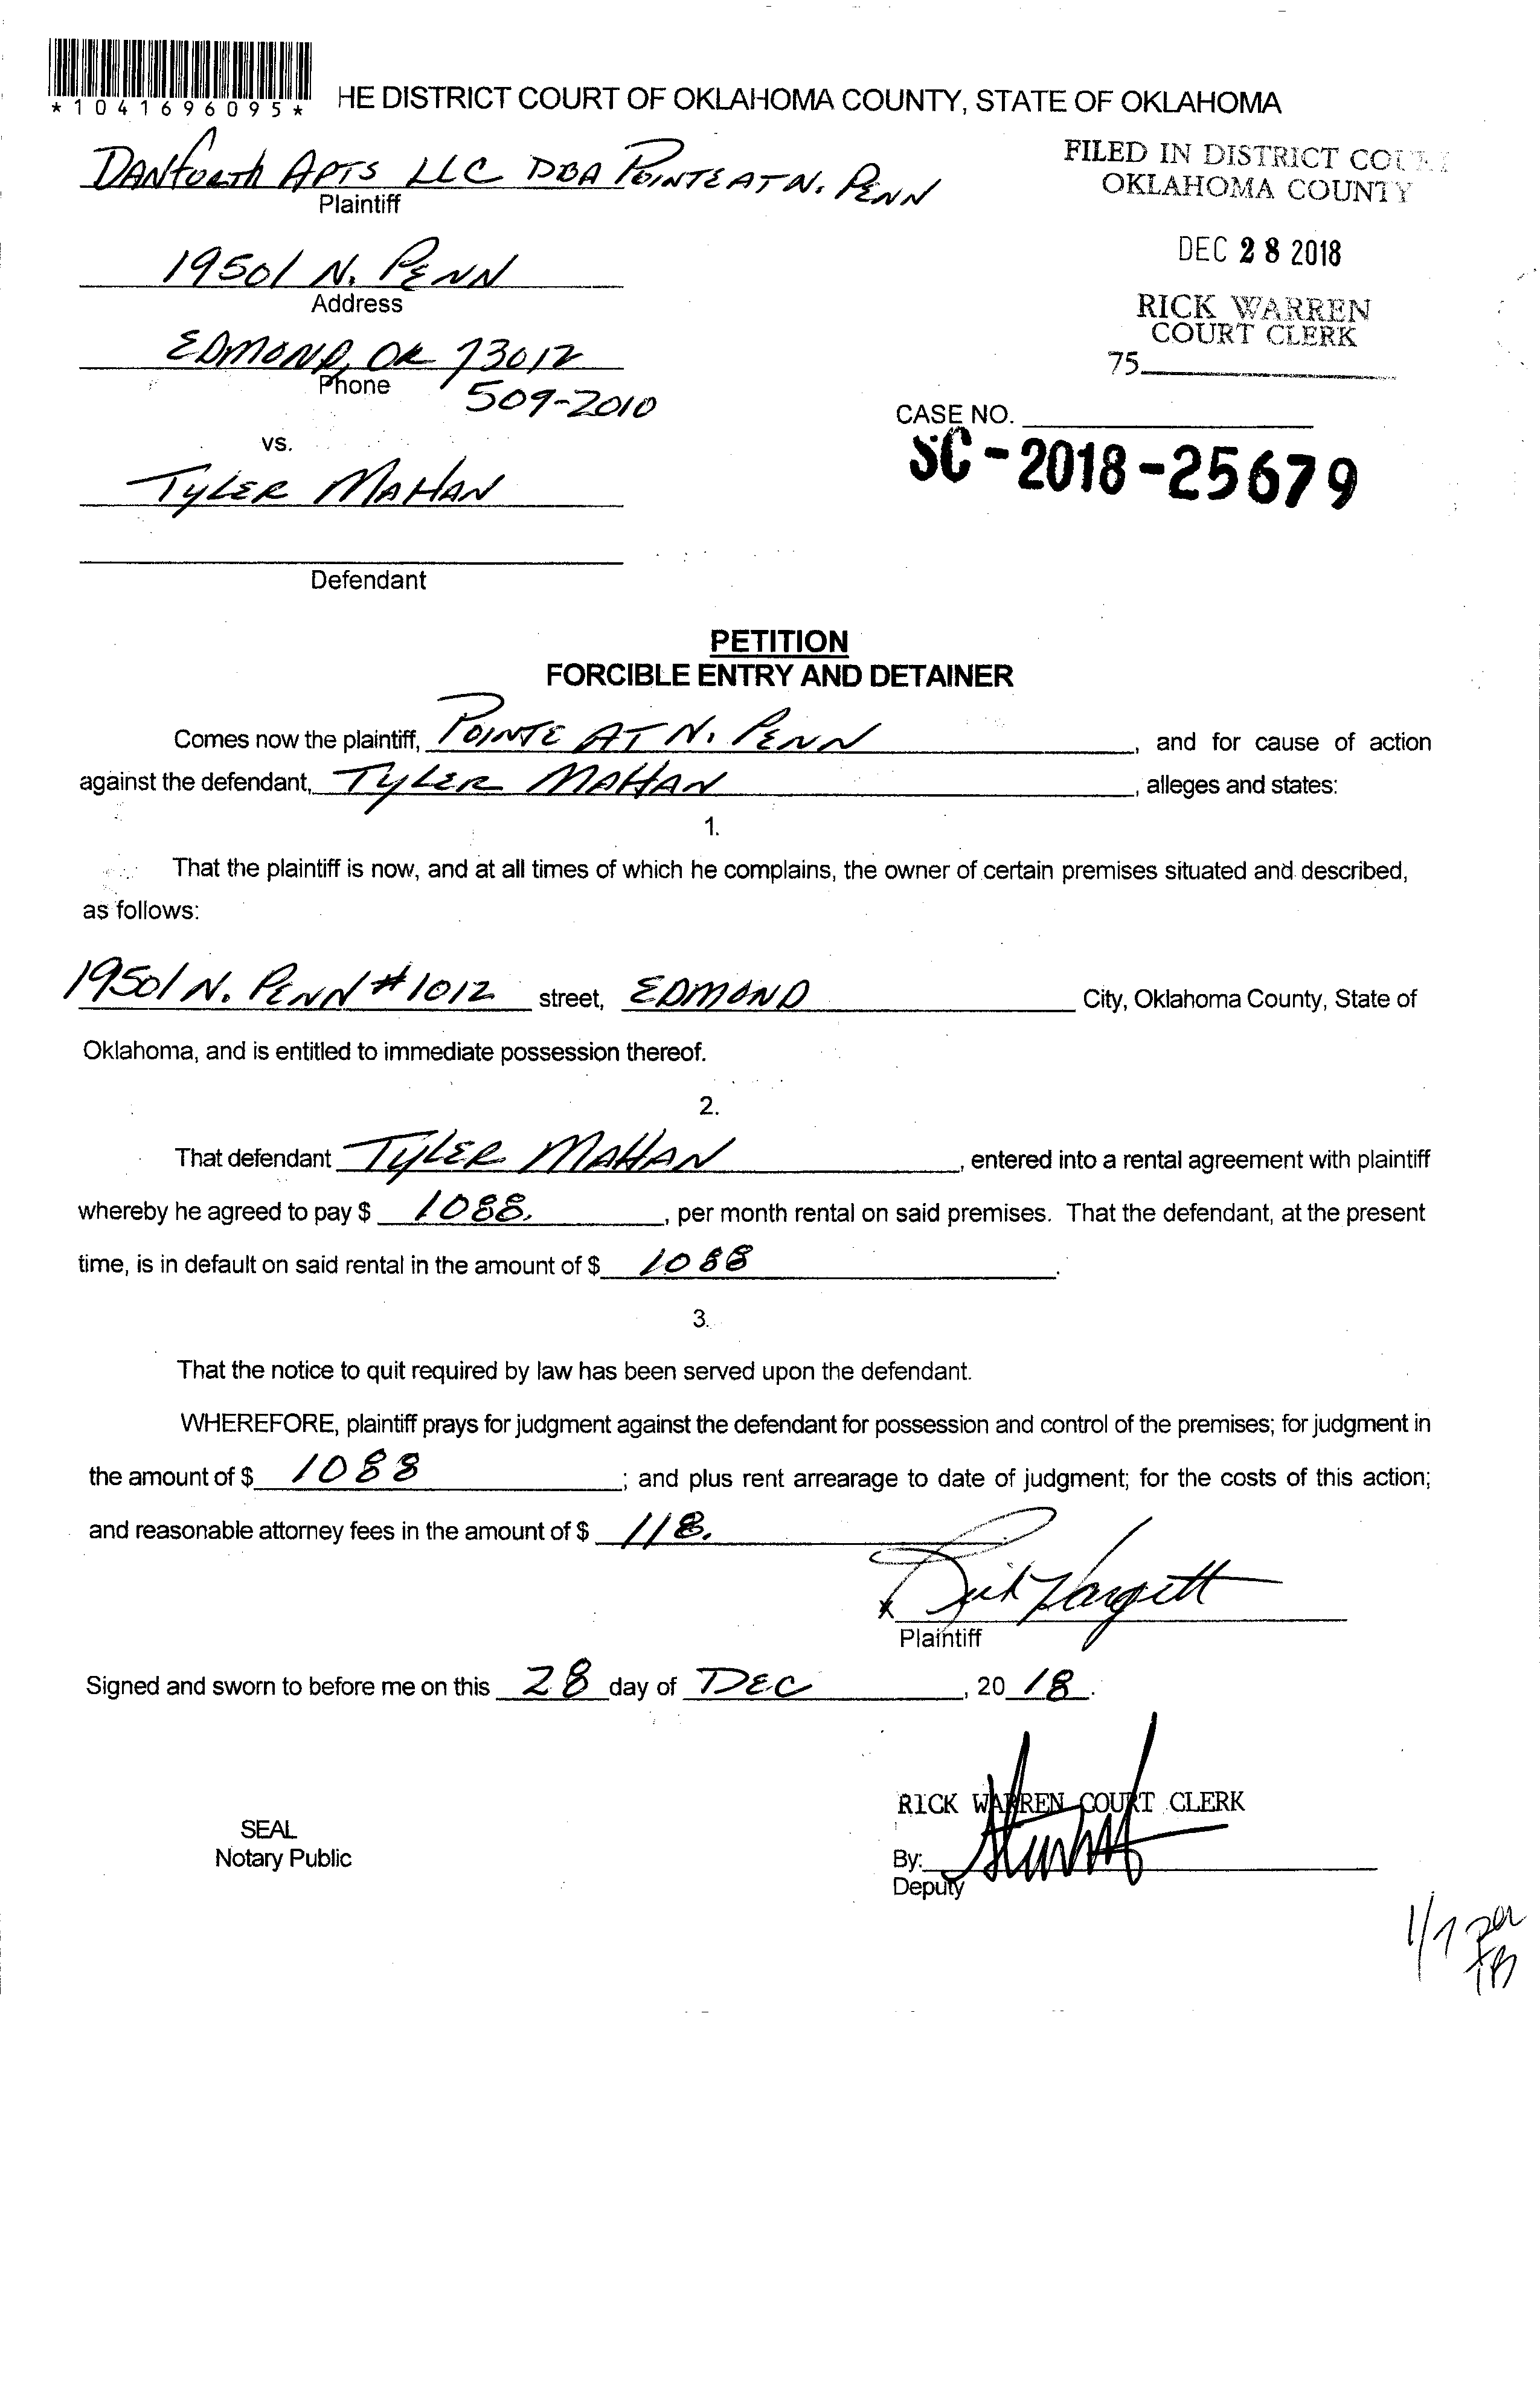 *1041696095*
HE DISTRICT COURT OF OKLAHOMA COUNTY, STATE OF OKLAHOMA
DANFORTH APTS LLC DBA POINTE AT N. PENN
Plaintiff
FILED IN DISTRICT COURT
OKLAHOMA COUNTY
DEC 28 2018
RICK WARREN
COURT CLERK
75
19501 N. PENN
Address
EDMOND, OK 73012
Phone
509-2010
CASE NO.
SC-2018-25679
vs.
TYLER MAHAN
Defendant
PETITION
FORCIBLE ENTRY AND DETAINER
Comes now the plaintiff, POINTE AT N. PENN, and for cause of action
against the defendant, TYLER MAHAN, alleges and states:
1.
That the plaintiff is now, and at all times of which he complains, the owner of certain premises situated and described,
as follows:
19501 N. PENN #1012 street, EDMOND City, Oklahoma County, State of
Oklahoma, and is entitled to immediate possession thereof.
2.
That defendant TYLER MAHAN, entered into a rental agreement with plaintiff
whereby he agreed to pay $ 1088., per month rental on said premises. That the defendant, at the present
time, is in default on said rental in the amount of $ 1088.
3.
That the notice to quit required by law has been served upon the defendant.
WHEREFORE, plaintiff prays for judgment against the defendant for possession and control of the premises; for judgment in
the amount of $ 1088; and plus rent arrearage to date of judgment; for the costs of this action;
and reasonable attorney fees in the amount of $ 118.
x Hargett
Plaintiff
Signed and sworn to before me on this 28 day of DEC, 20 18.
RICK WARREN COURT CLERK
SEAL
Notary Public
By:
Deputy
1/7 per